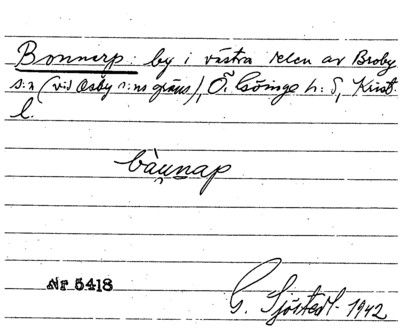 Bonnarp: by i västra delen av Broby
s:n (vid Osby s:ns gräns), Ö. Göinge h:d, Krist.
l.
bàu̯nap
Nr 5418
G. Sjöstedt 1942